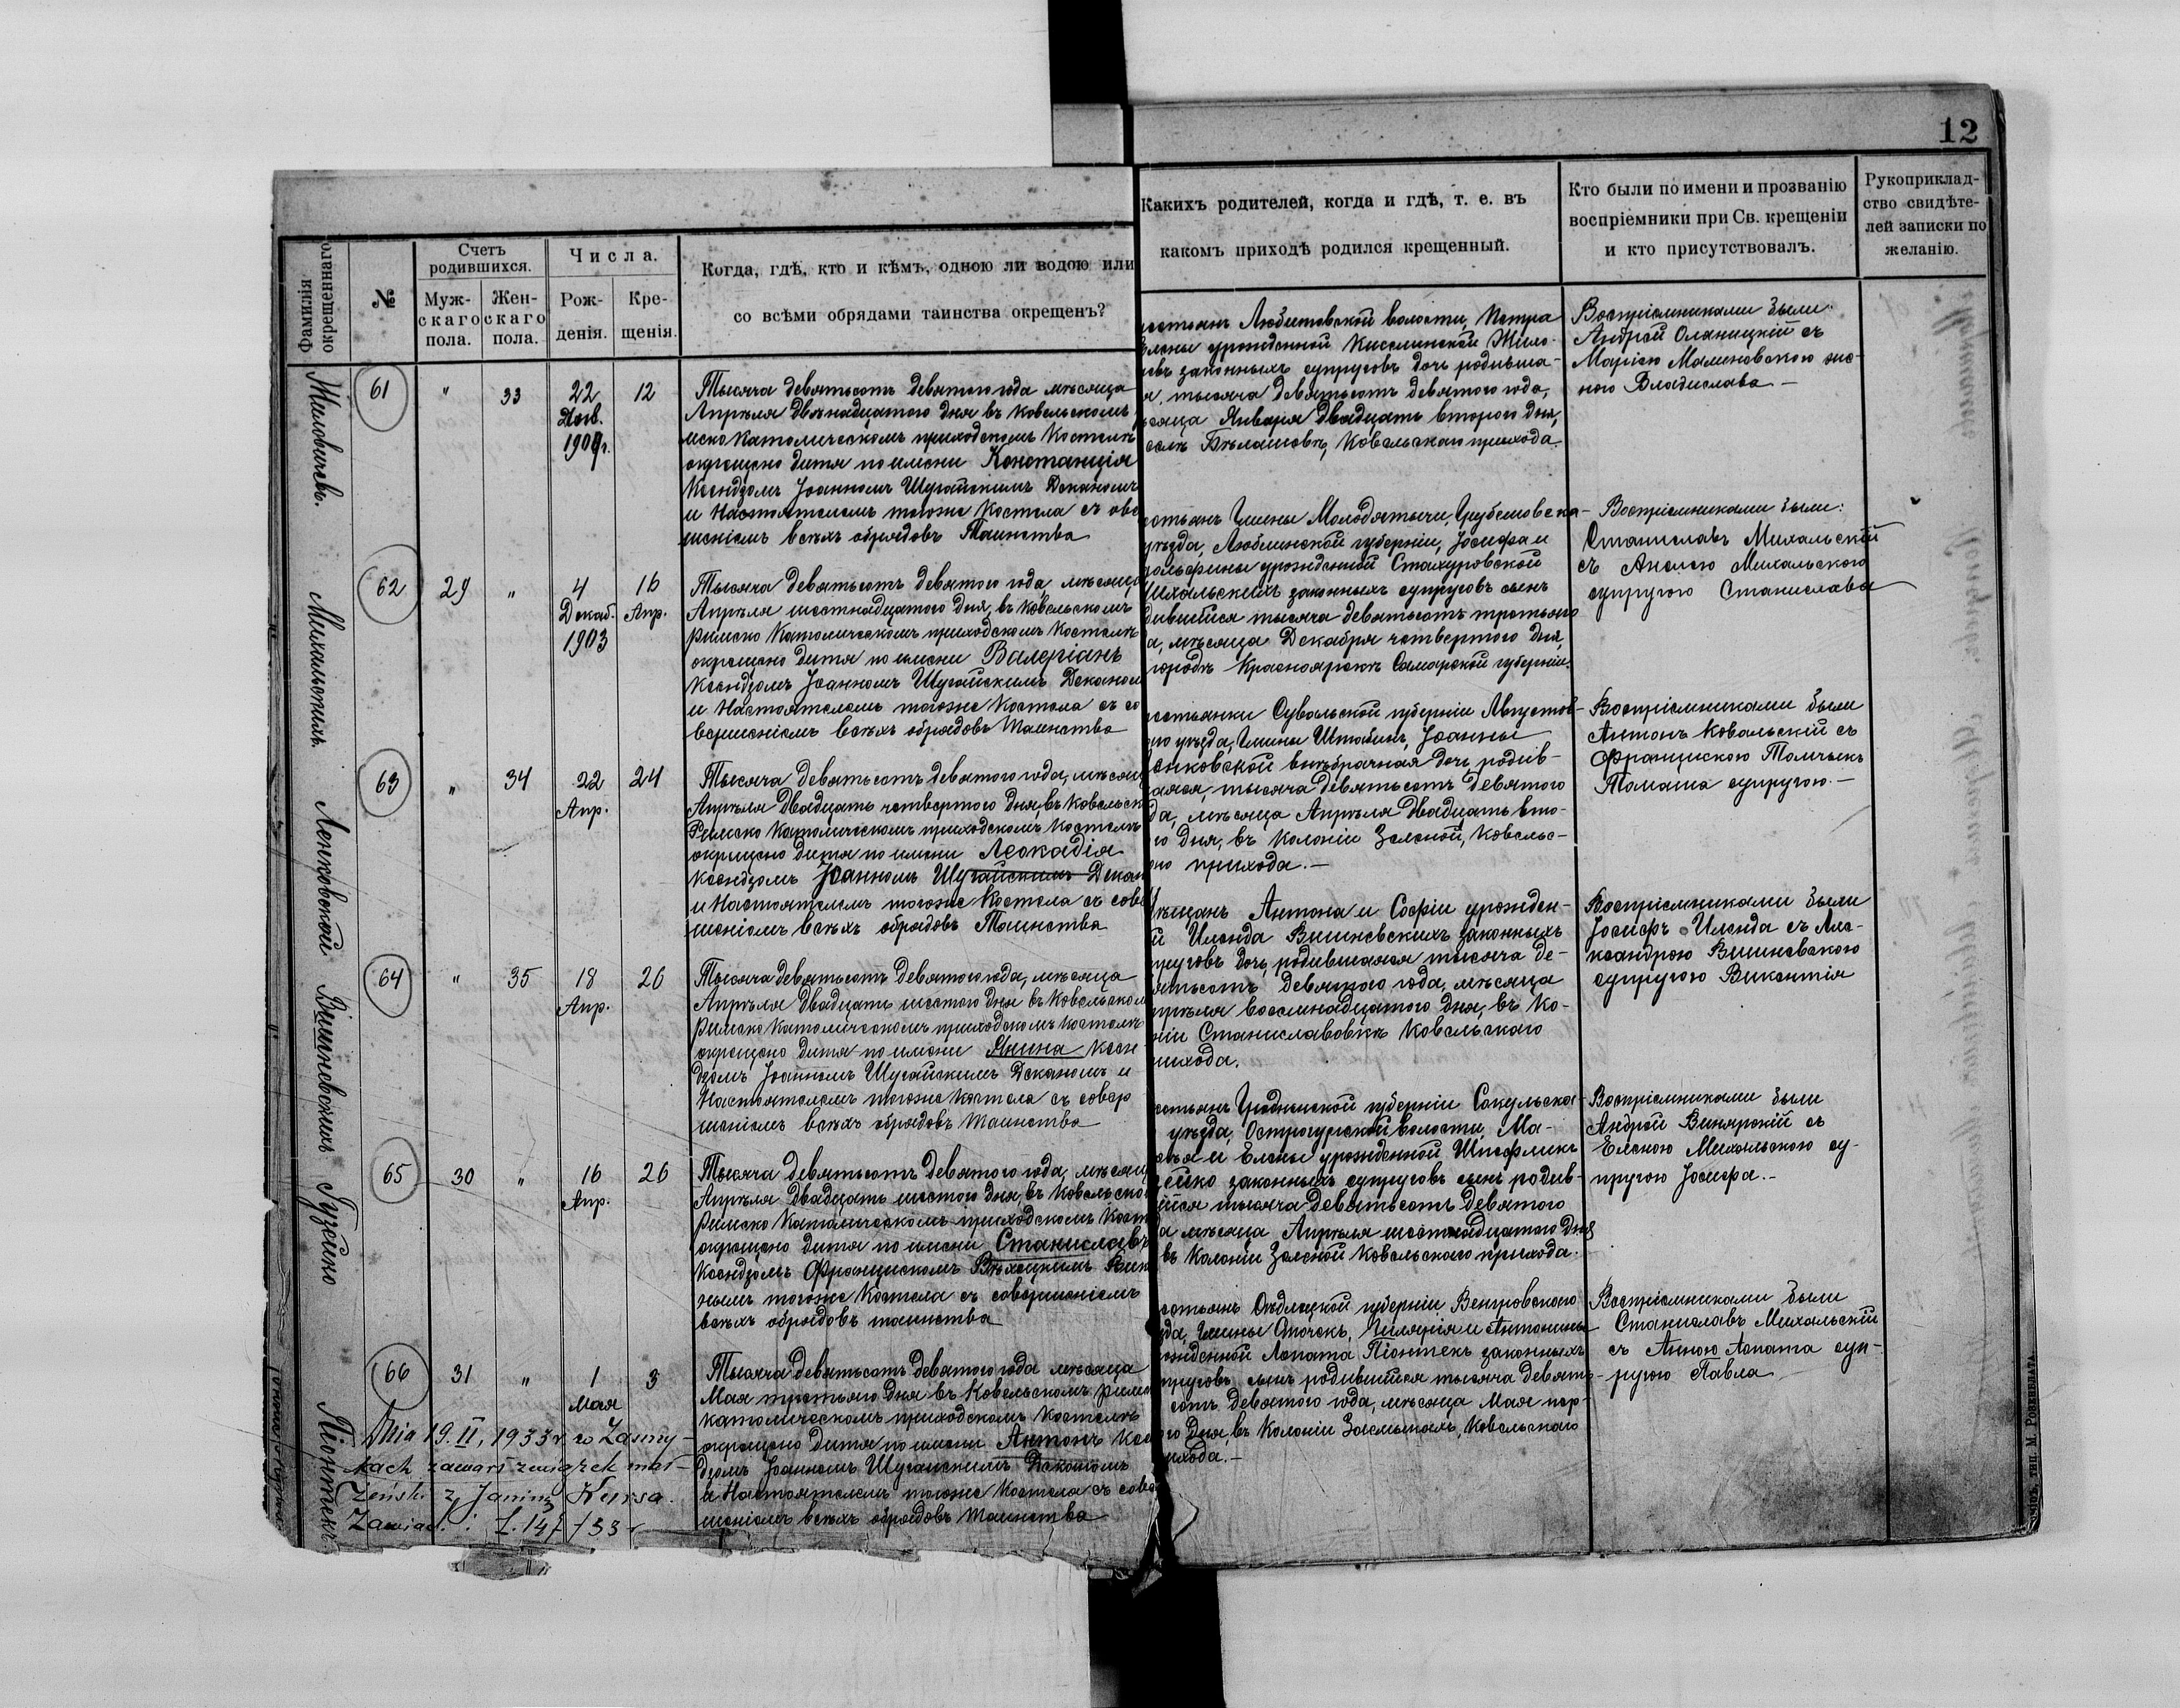 12
Фамилія окрещеннаго
№
Счетъ родившихся.
Муж-
скаго
пола.
Жен-
скаго
пола.
Числа.
Рож-
денія.
Кре-
щенія.
Когда, гдѣ, кто и кѣмъ, одною ли водою или
со всѣми обрядами таинства окрещенъ?
Какихъ родителей, когда и гдѣ, т. е. въ
какомъ приходѣ родился крещенный.
Кто были по имени и прозванію
воспріемники при Св. крещеніи
и кто присутствовалъ.
Рукоприклад-
ство свидѣте-
лей записки по
желанію.
61
"
33
22
1909г.
12
Тысяча девятьсотъ девятого года мѣсяца
Апрѣля двѣнадцатого дня въ Ковельскомъ
мско Католическомъ приходскомъ Костелѣ
окрещено дитя по имени Констанція
Ксендзомъ Іоанномъ Шугайскимъ Деканомъ
и Настоятелемъ тогоже Костела съ
шеніемъ всѣхъ обрядовъ Таинства
стьянъ Любитовской волости, Петра
Елены урожденной Киселинской Жило-
овъ законныхъ супруговъ дочь родивша-
я, тысяча девятьсотъ девятого года,
сяца Января двадцать второго дня,
селѣ Бѣлашовѣ, Ковельскаго прихода.
Воспріемниками были:
Андрей Оланицкій съ
Маріею Малиновскою же-
ною Владислава —
Михальскихъ
62
29
"
4
Декаб.
1903
16
Апр.
Тысяча девятьсотъ девятого года, мѣсяца
Апрѣля шестнадцатого дня, въ Ковельскомъ
Римско Католическомъ приходскомъ Костелѣ
окрещено дитя по имени Валеріанъ
Ксендзомъ Іоанномъ Шугайскимъ Деканом
и Настоятелемъ тогоже Костела съ со
вершеніемъ всѣхъ обрядовъ Таинства
стьянъ Гмины Молодятычи, Грубешовска-
уѣзда, Люблинской губерніи, Іосифа и
урожденной Стахуровской
Михальскихъ законныхъ супруговъ сынъ
дившійся тысяча девятьсотъ третьяго
а, мѣсяца Декабря четвертого дня,
городѣ Красноярскѣ Самарской губерніи.
Воспріемниками были:
Станиславъ Михальскій
съ Анелею Михальскою
супругою Станислава
63
"
34
22
Апр.
24
Тысяча девятьсотъ девятого года, мѣсяц
Апрѣля двадцать четвертого дня, въ Ковельск
Римско Католическомъ приходскомъ Костелѣ
окрещено дитя по имени Леокадія
Ксендзомъ Іоанномъ Шугайскимъ Декан
и Настоятелемъ тогоже Костела съ сове
шеніемъ всѣхъ обрядовъ Таинства
стьянки Сувальской губерніи Августов-
го уѣзда, Гмины Штабинъ, Іоанны
енковской внѣбрачная дочь, родив-
шаяся, тысяча девятьсотъ девятого
да, мѣсяца Апрѣля двадцать вто-
го дня, въ Колоніи Зеленой, Ковельс-
ого прихода. —
Воспріемниками были
Антонъ Ковальскій съ
Францискою Томчыкъ
Томаша супругою. —
Вишневскихъ
64
"
35
18
Апр.
26
Тысяча девятьсотъ девятого года, мѣсяца
Апрѣля двадцать шестого дня въ Ковельском
Римско Католическомъ приходскомъ Костелѣ
окрещено дитя по имени Янина Ксен-
дзомъ Іоанномъ Шугайскимъ Деканомъ и
Настоятелемъ тогоже Костела съ совер
шеніемъ всѣхъ обрядовъ Таинства
мѣщанъ Антона и Софіи урожден-
й Вишневскихъ законныхъ
пруговъ дочь, родившаяся тысяча де-
вятьсотъ девятого года, мѣсяца
прѣля восемнадцатого дня, въ Ко-
ніи Станиславовкѣ Ковельскаго
рихода.
Воспріемниками были
Іосифъ съ Але-
ксандрою Вишневскою
супругою Викентія
Гузейко
65
30
"
16
Апр.
26
Тысяча девятьсотъ девятого года, мѣсяц
Апрѣля двадцать шестого дня, въ Ковельско
Римско Католическомъ приходскомъ Кост
окрещено дитя по имени Станиславъ
Ксендзомъ Францискомъ Вик
нымъ тогоже Костела съ совершеніемъ
всѣхъ обрядовъ таинства
стьянъ Гродненской губерніи Сокульска-
уѣзда, Острогурской волости, Ма-
и Елены урожденной
зейко законныхъ супруговъ сынъ родив-
ійся тысяча девятьсотъ девятого
да мѣсяца Апрѣля шестнадцатого дня
въ Колоніи Зеленой Ковельскаго прихода.
Воспріемниками были
Андрей Винярскій съ
Еленою Михальскою су-
пругою Іосифа. —
Піонтекъ
66
31
"
1
Мая
3
Тысяча девятьсотъ девятого года мѣсяца
Мая третьяго дня въ Ковельскомъ Римс
католическомъ приходскомъ Костелѣ
окрещено дитя по имени Антонъ Ксе
дзомъ Іоанномъ Шугайскимъ Деканомъ
и Настоятелемъ тогоже Костела съ сове
шеніемъ всѣхъ обрядовъ Таинства
стьянъ Сѣдлецкой губерніи Венгровского
да, Гмины и Антонины
рожденной Лопата Піонтекъ законныхъ
пруговъ сынъ родившійся тысяча девять-
сотъ девятого года, мѣсяца Мая пер-
го дня, въ Колоніи Засмыкахъ, Ковельскаго
ихода. —
Воспріемниками были
Станиславъ Михальскій
съ Анною Лопата суп-
ругою Павла
Dnia 19.II.1933 r. w Zasmy-
kach zawarł związek mał-
żeńsk. z Janiną Kursa.
Zawiad.: L.147/33 r